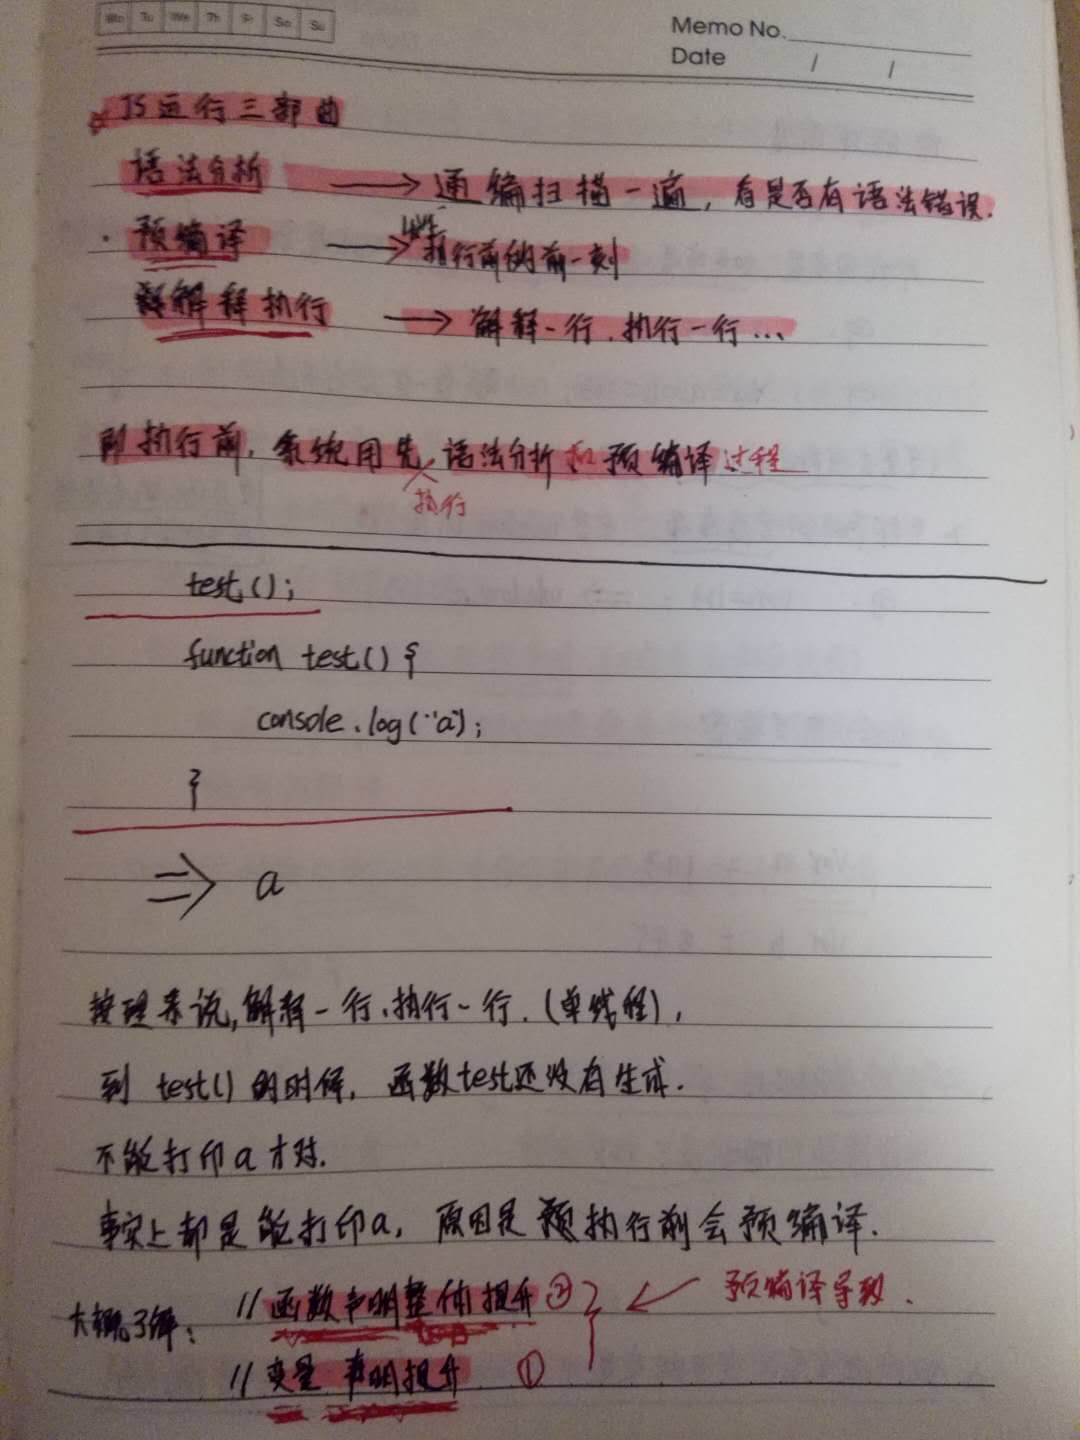 Mo Tu We Th Fr Sa Su
Memo No.
Date / /
JS运行三部曲
语法分析 → 通编扫描一遍，看是否有语法错误.
预编译 → 执行前的前一刻
解释执行 → 解释一行.执行一行...
即执行前，系统用先执行语法分析和预编译过程
test();
function test(){
console.log("a");
}
⇒ a
按理来说,解释一行,执行一行.(单线程),
到 test()的时候，函数test还没有生成.
不能打印a才对.
事实上却是能打印a，原因是预执行前会预编译.
大概了解: // 函数声明整体提升② ← 预编译导致.
// 变量 声明提升 ①